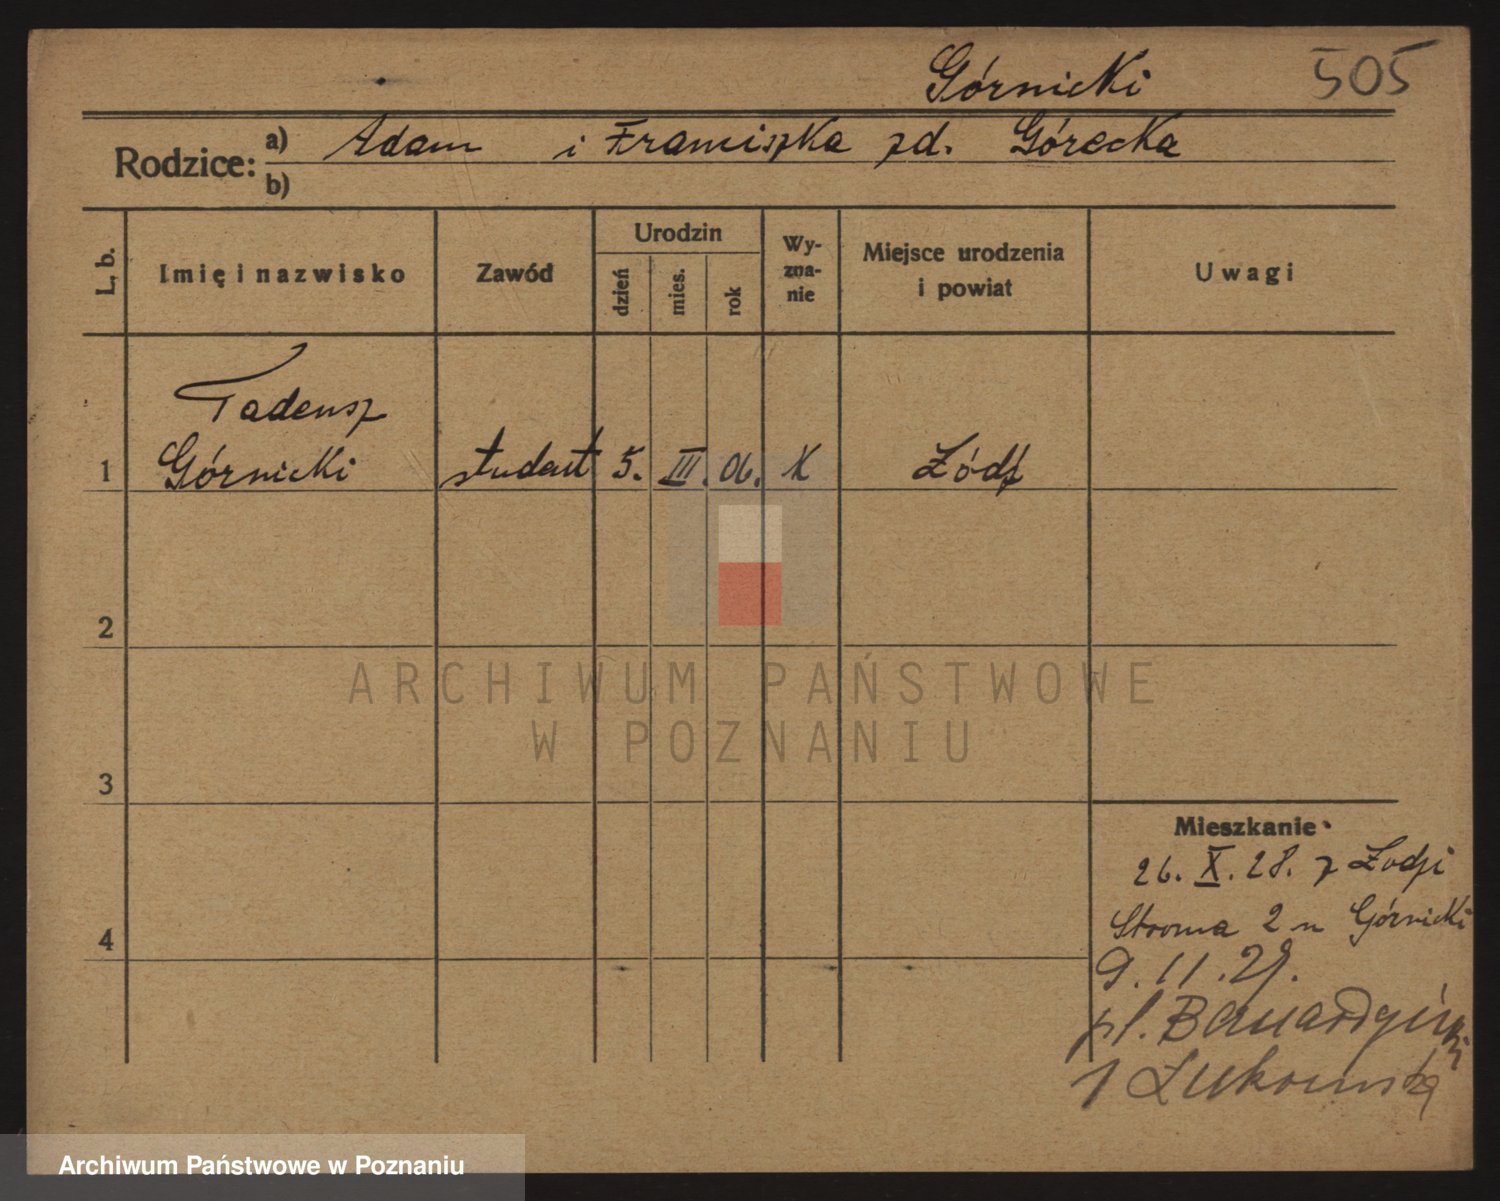 Górnicki 505
Rodzice: a) Adam i Franciszka zd. Górecka
b)
L. b. Imię i nazwisko Zawód Urodzin dzień mies. rok Wy-zna-nie Miejsce urodzenia i powiat Uwagi
Tadeusz
1 Górnicki student 5. III. 06. K Łódź
2
3
4
Mieszkanie
26. X. 28. z Łodzi
Stroma 2 u Górnicki
9. 11. 29.
pl. Bernardyński
1
ARCHIWUM PAŃSTWOWE
W POZNANIU
Archiwum Państwowe w Poznaniu